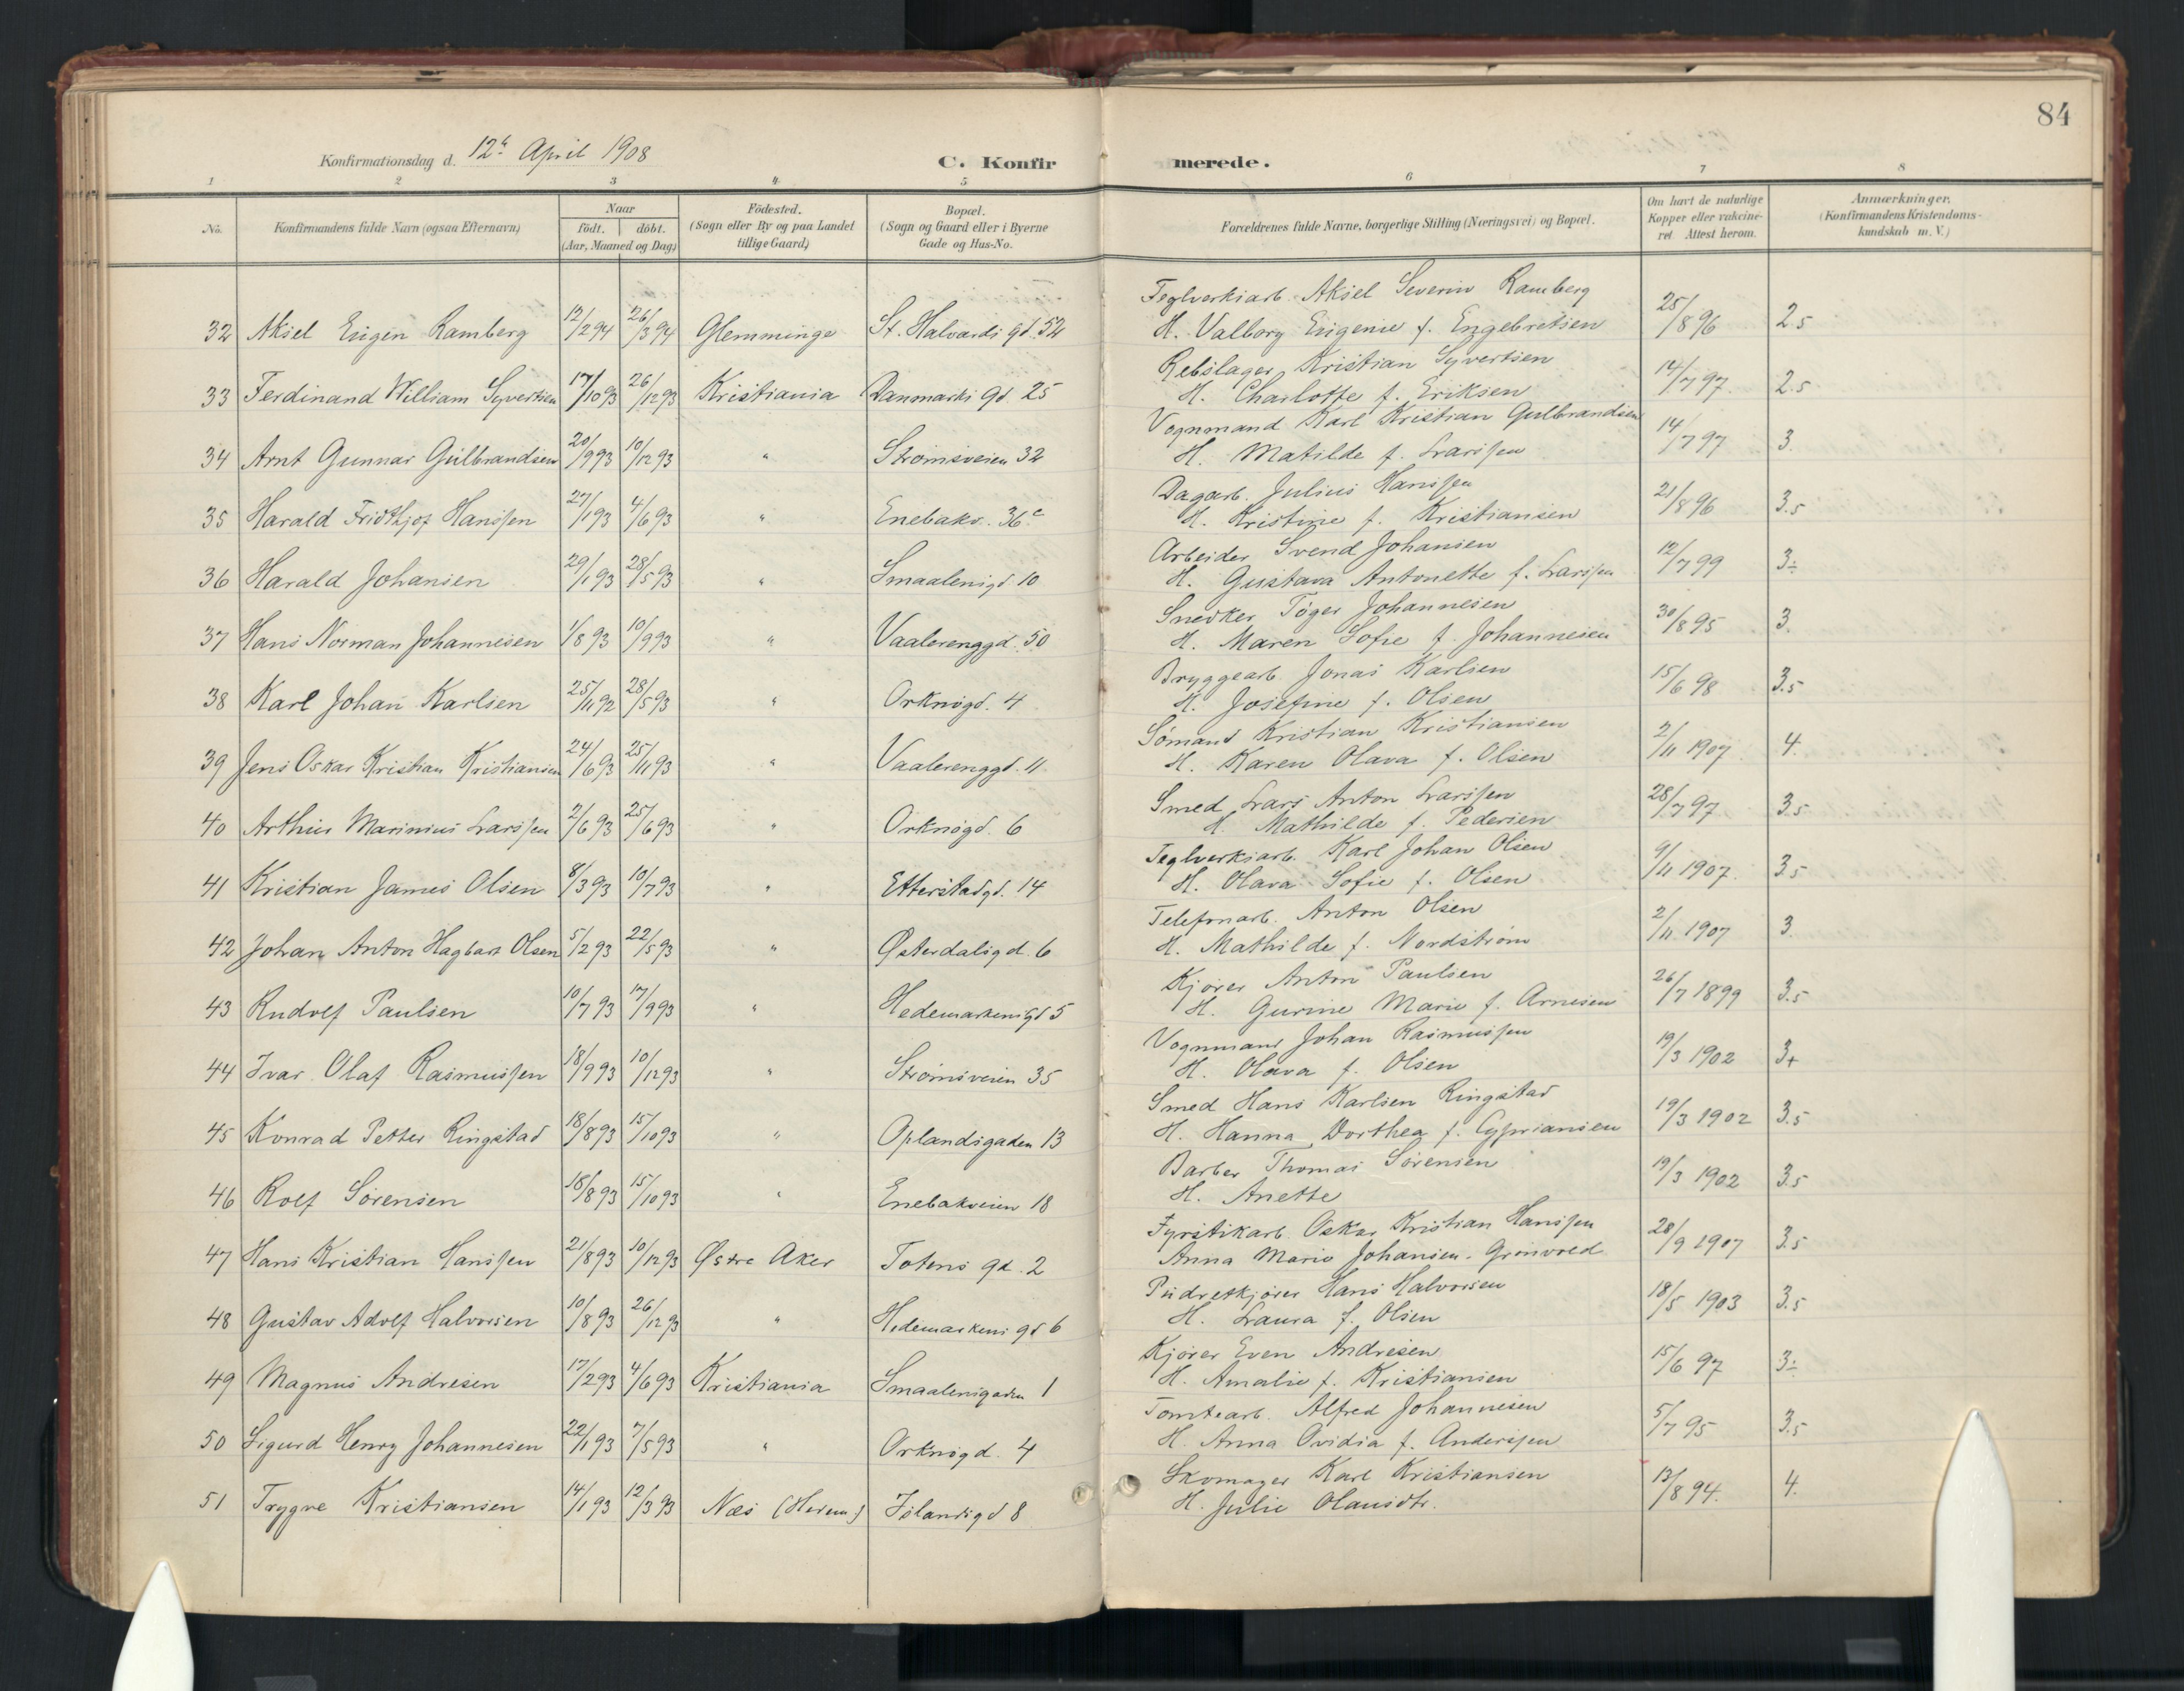 84
Konfirmationsdag d. 12te April 1908
C. Konfirmerede.
1 2 3 4 5 6 7 8
No.
Konfirmandens fulde Navn (ogsaa Efternavn)
Naar
födt. döbt.
(Aar, Maaned og Dag)
Födested.
(Sogn eller By og paa Landet
tillige Gaard)
Bopæl.
(Sogn og Gaard eller i Byerne
Gade og Hus-No.
Forældrenes fulde Navne, borgerlige Stilling (Næringsvei) og Bopæl.
Om havt de naturlige
Kopper eller vakcine-
ret. Attest herom.
Anmærkninger.
(Konfirmandens Kristendoms-
kundskab m. V.)
Teglverksarb. Aksel Severin Ramberg
32 Aksel Eugen Ramberg 12/2 94 26/3 94 Glemminge St. Halvards gd. 52 H. Valborg Eugenie f. Engebretsen 25/8 96 2.5
Rebslager Kristian Syvertsen
33 Ferdinand William Syvertsen 17/10 93 26/12 93 Kristiania Danmarks gd. 25 H. Charlotte f. Eriksen 14/7 97. 2.5
Vognmand Karl Kristian Gulbrandsen
34 Arnt Gunnar Gulbrandsen 20/9 93 10/12 93 " Strømsveien 32 H. Matilde f. Larssen 14/7 97 3.
Dagarb. Julius Hanssen
35 Harald Fridthjof Hanssen 27/1 93 4/6 93 " Enebakv. 36 c H. Kristine f. Kristiansen 21/8 96 3.5
Arbeider Svend Johansen
36 Harald Johansen 29/1 93 28/5 93 " Smaalensgd. 10 H. Gustava Antonette f. Larssen 12/7 99 3÷
Snedker Tøger Johannesen
37 Hans Norman Johannesen 1/8 93 10/9 93 " Vaalerenggd. 50 H. Maren Sofie f. Johannesen 30/8 95 3.
Bryggearb. Jonas Karlsen
38 Karl Johan Karlsen 25/11 92 28/5 93 " Orknøgd. 4 H. Josefine f. Olsen 15/6 98 3.5
Sømand Kristian Kristiansen
39 Jens Oskar Kristian Kristiansen 24/6 93 25/11 93 " Vaalerenggd. 11 H. Karen Olava f. Olsen 2/11 1907 4.
Smed Lars Anton Larssen
40 Arthur Marinius Larssen 2/6 93 25/6 93 " Orknøgd. 6 H. Mathilde f. Pedersen 28/7 97 3.5
Teglverksarb. Karl Johan Olsen
41 Kristian James Olsen 8/3 93 10/7 93 " Etterstadgd. 14 H. Olava Sofie f. Olsen 9/11 1907. 3.5
Telefonarb. Anton Olsen
42 Johan Anton Hagbart Olsen 5/2 93 22/5 93 " Østerdalsgd. 6 H. Mathilde f. Nordstrøm 2/11. 1907 3.
Kjører Anton Paulsen
43 Rudolf Paulsen 10/7 93 17/9 93 " Hedemarkensgd 5 H. Gurine Marie f. Arnesen 26/7 1899 3.5
Vognmand Johan Rasmussen
44 Ivar Olaf Rasmussen 18/9 93 10/12 93 " Strømsveien 35 H. Olava f. Olsen 19/3 1902 3+
Smed Hans Karlsen Ringstad
45 Konrad Petter Ringstad 18/8 93 15/10 93 " Oplandsgaden 13 H. Hanna Dorthea f. Cypriansen 19/3 1902 3.5
Barber Thomas Sørensen
46 Rolf Sørensen 18/8 93 15/10 93 " Enebakveien 18 H. Anette 19/3 1902 3.5
Fyrstikarb. Oskar Kristian Hanssen
47 Hans Kristian Hanssen 21/8 93 10/12 93 Østre Aker Totens gd. 2 Anna Marie Johansen. Grønvold 28/9 1907 3.5
Pudretkjører Hans Halvorsen
48 Gustav Adolf Halvorsen 10/8 93 26/12 93 " Hedemarkens gd 6 H. Laura f. Olsen 18/5 1903 3.5
Kjører Even Andresen
49 Magnus Andresen 17/2 93 4/6 93 Kristiania Smaalensgaden 1 H. Amalie f. Kristiansen 15/6 97 3÷
Tomtearb. Alfred Johannesen
50 Sigurd Henry Johannesen 22/1 93 7/5 93 " Orknøgd. 4 H. Anna Ovidia f. Anderssen 5/7 95 3.5
Skomager Karl Kristiansen
51 Trygve Kristiansen 14/1 93 12/3 93 Næs (Hedem.) Islandsgd 8 H. Julie Olausdtr. 13/8 94. 4.